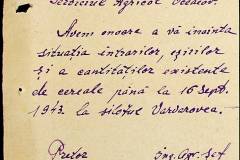 Serviciul Agricol Oceacov.
Avem onoare a vă înainta
situația intrărilor, eșirilor
și a cantităților existente
de cereale până la 16 Sept.
1943 la silozul Varvarovca.
Pretor Ing. Agr. Șef